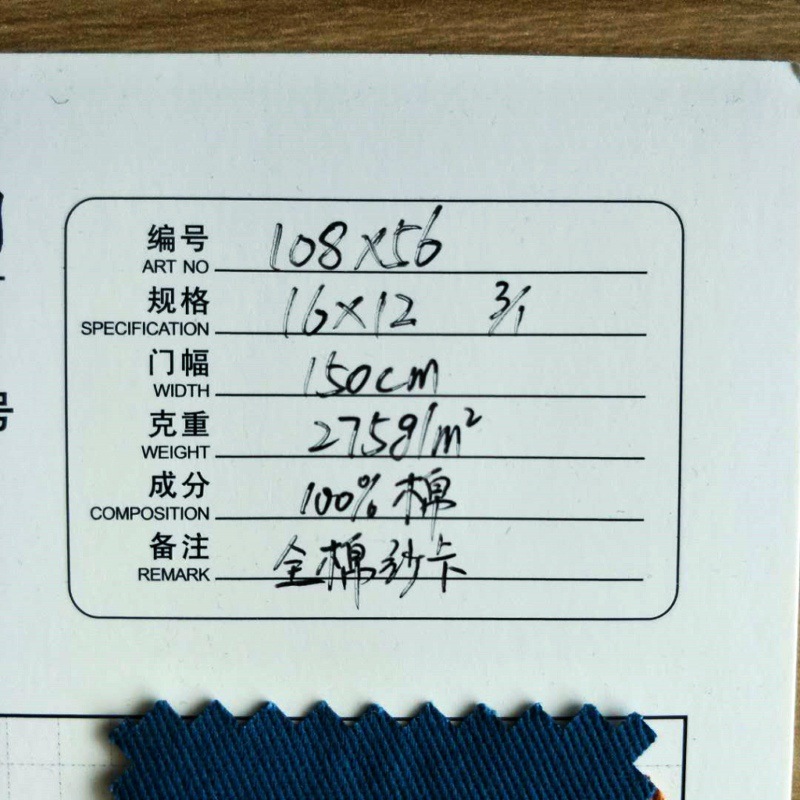 编号 108×56
ART NO
规格 16×12 3/1
SPECIFICATION
门幅 150cm
WIDTH
克重 275g/m²
WEIGHT
成分 100%棉
COMPOSITION
备注 全棉纱卡
REMARK
号